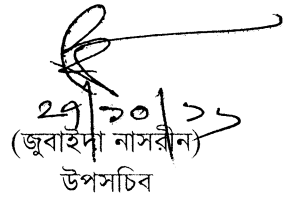 ২৭/১০/১১
(জুবাইদা নাসরীন)
উপসচিব